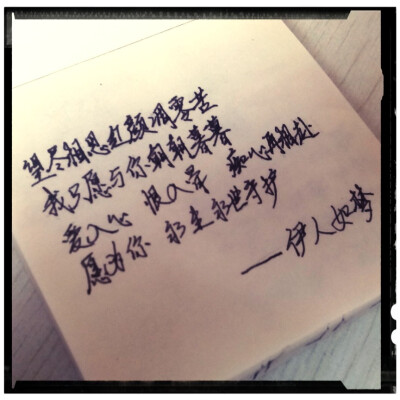 望尽相思红颜凋零苦
我只愿与你朝朝暮暮
爱入心 恨入骨 痴心再相赴
愿为你 永生永世守护
——伊人如梦